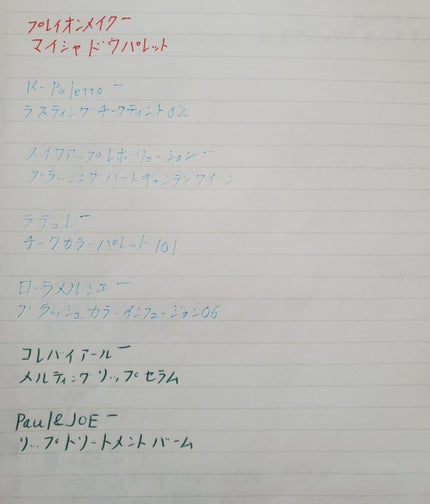 プレイオンメイクー
マイシャドウパレットー
K-Palettoー
ラスティングチークティント02
メイクアップレボリューションー
ブラーシングハートキャンディクイーン
ラデュレー
チークカラーパレット101
ローラメルシエー
ブラッシュカラーインフュージョン06
コレバイアールー
メルティングリップセラム
Paul&JOEー
リップトリートメントバーム